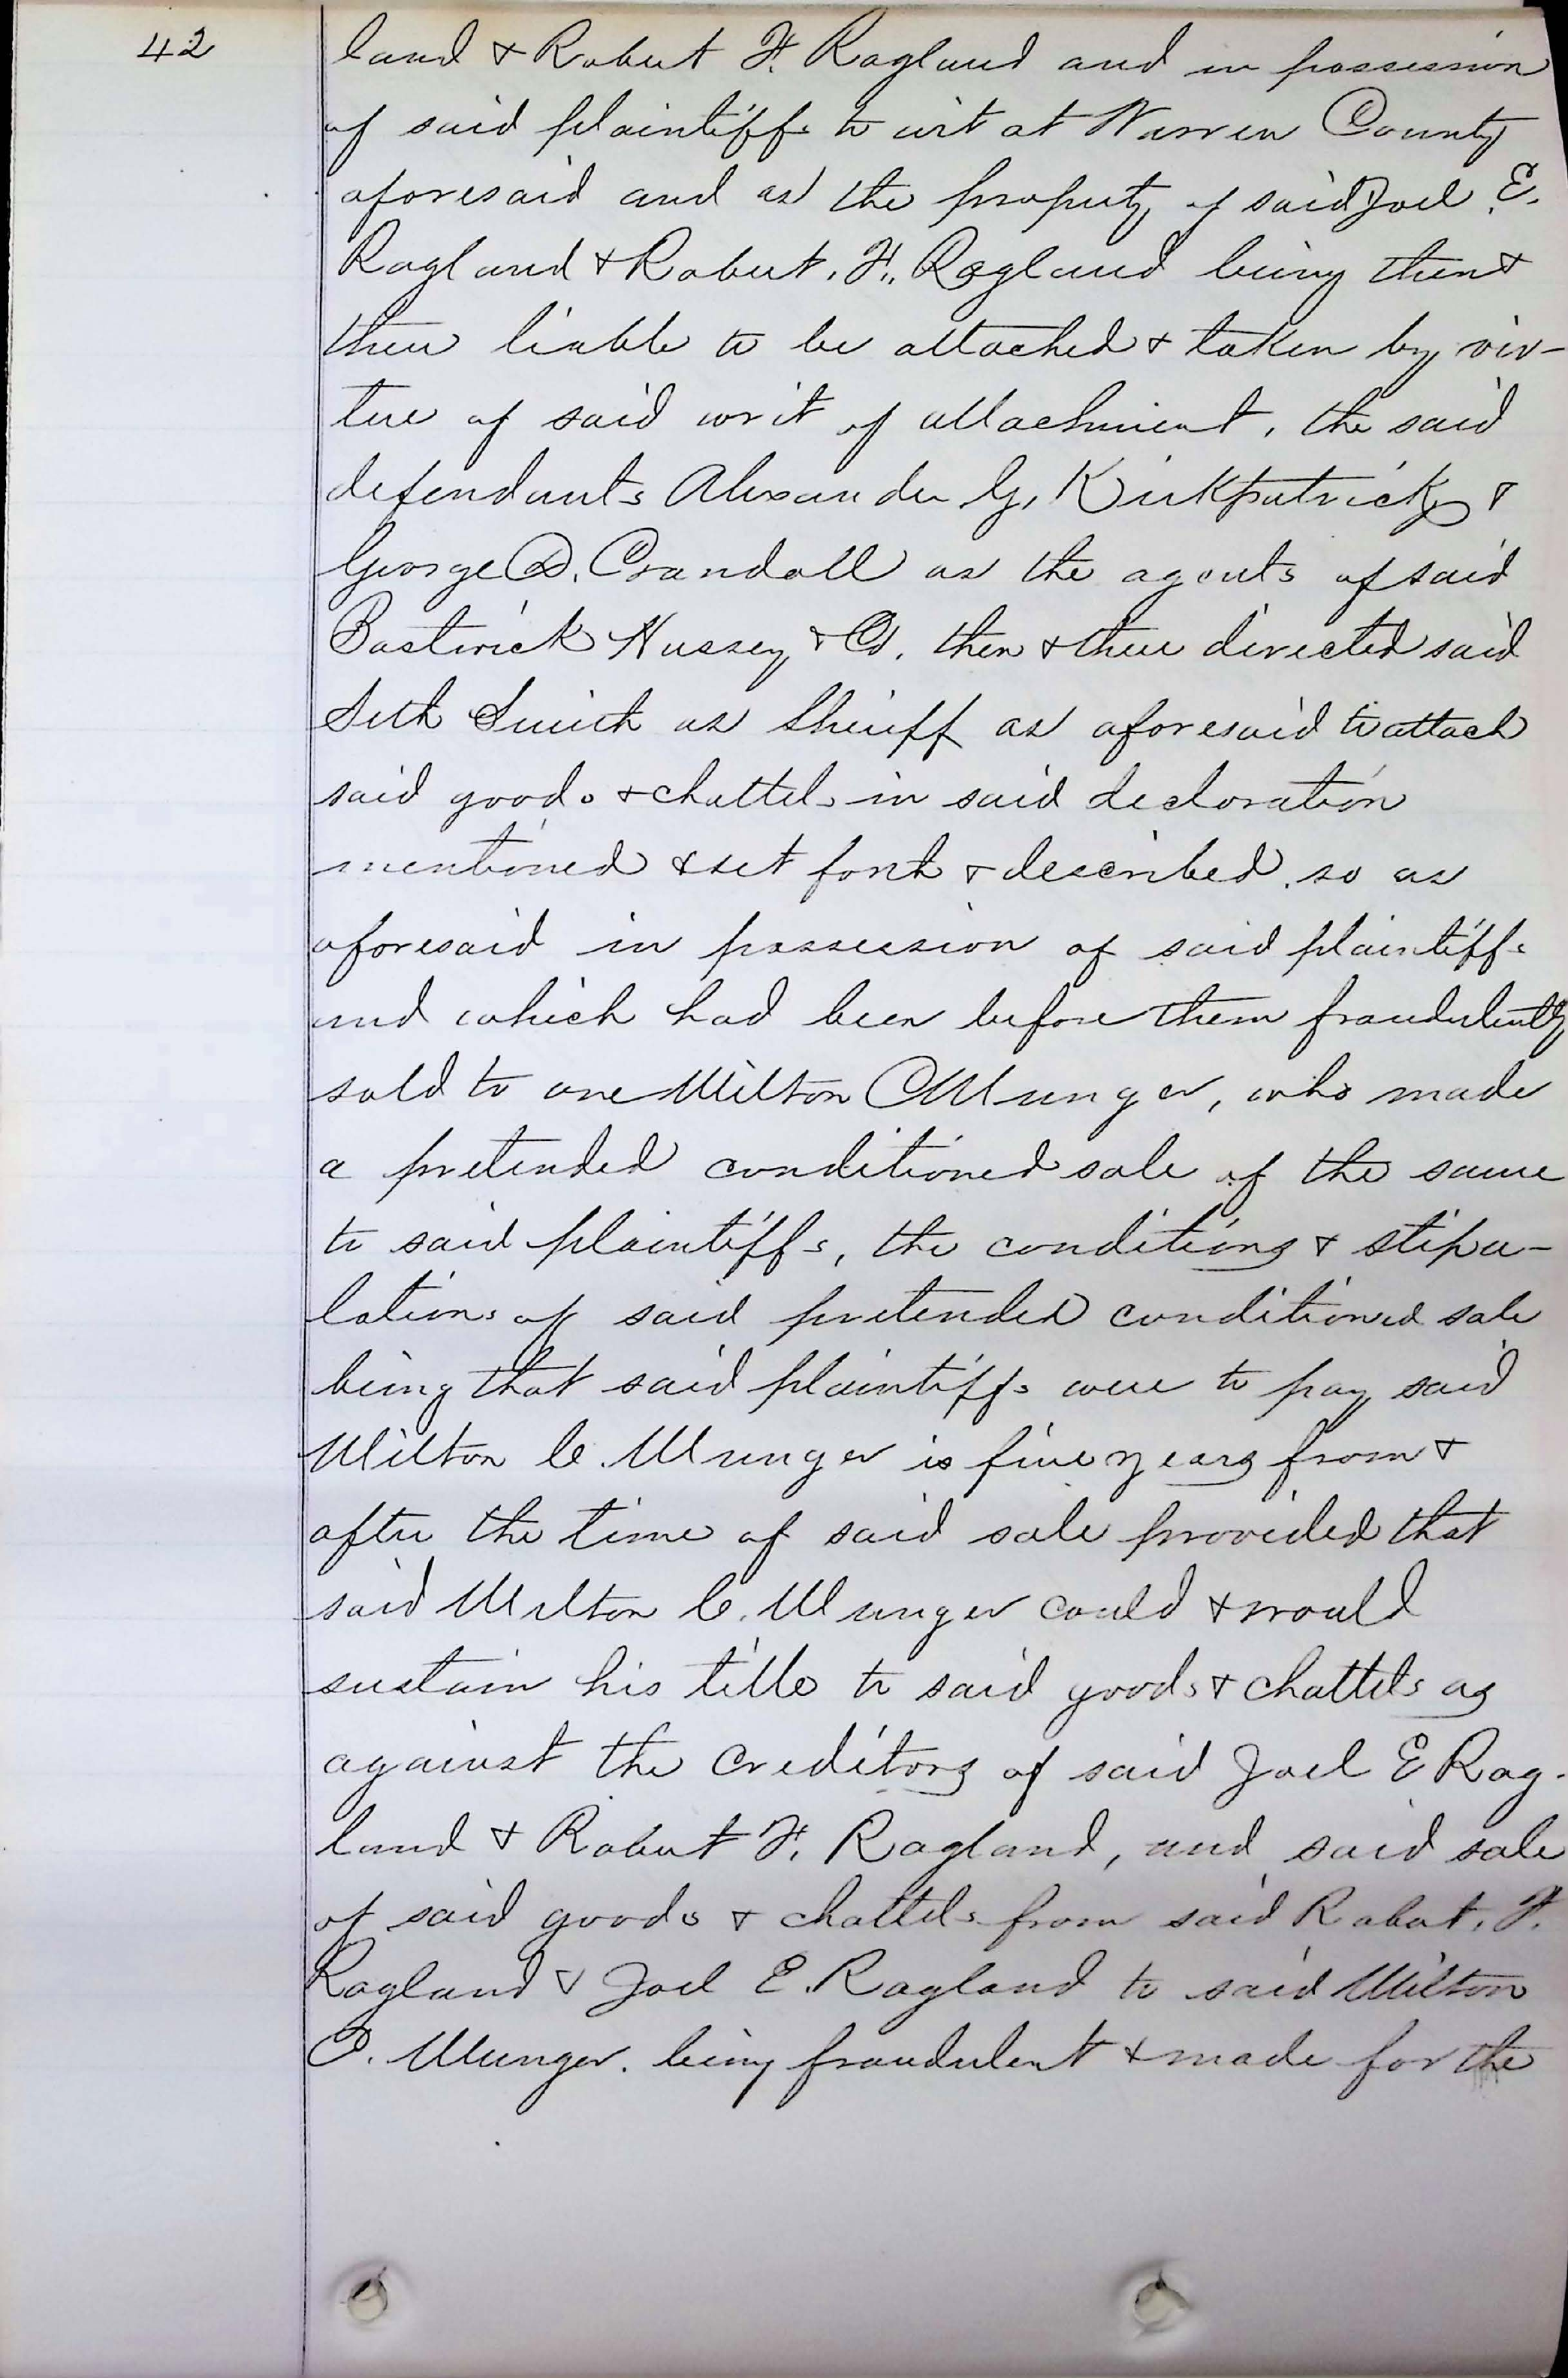 42
land & Robert F. Ragland and in possession
of said plaintiffs to wit at Warren County
aforesaid and as the property of said Joel E.
Ragland & Robert. F. Ragland being then &
there liable to be attached & taken by vir-
tue of said writ of attachment, the said
defendants Alexander G, Kirkpatrick &
George D. Crandall as the agents of said
Bostwick Hussey & Co. then & there directed said
Seth Smith as Sheriff as aforesaid to attach
said goods & chattels in said decloration
mentioned & set forth & described. so as
aforesaid in possession of said plaintiffs
and which had been before them fraudulently
sold to one Milton C Munger, who made
a pretended conditioned sale of the same
to said plaintiffs, the conditions & stipu-
lations of said pretended conditioned sale
being that said plaintiffs were to pay said
Milton C. Munger is five years from &
after the time of said sale provided that
said Milton C. Munger could & would
sustain his title to said goods & chattels as
against the Creditors of said Joel E Rag-
land & Robert F. Ragland, and said sale
of said goods & chattels from said Robert. F.
Ragland & Joel E. Ragland to said Milton
C. Munger. being fraudulent & made for the